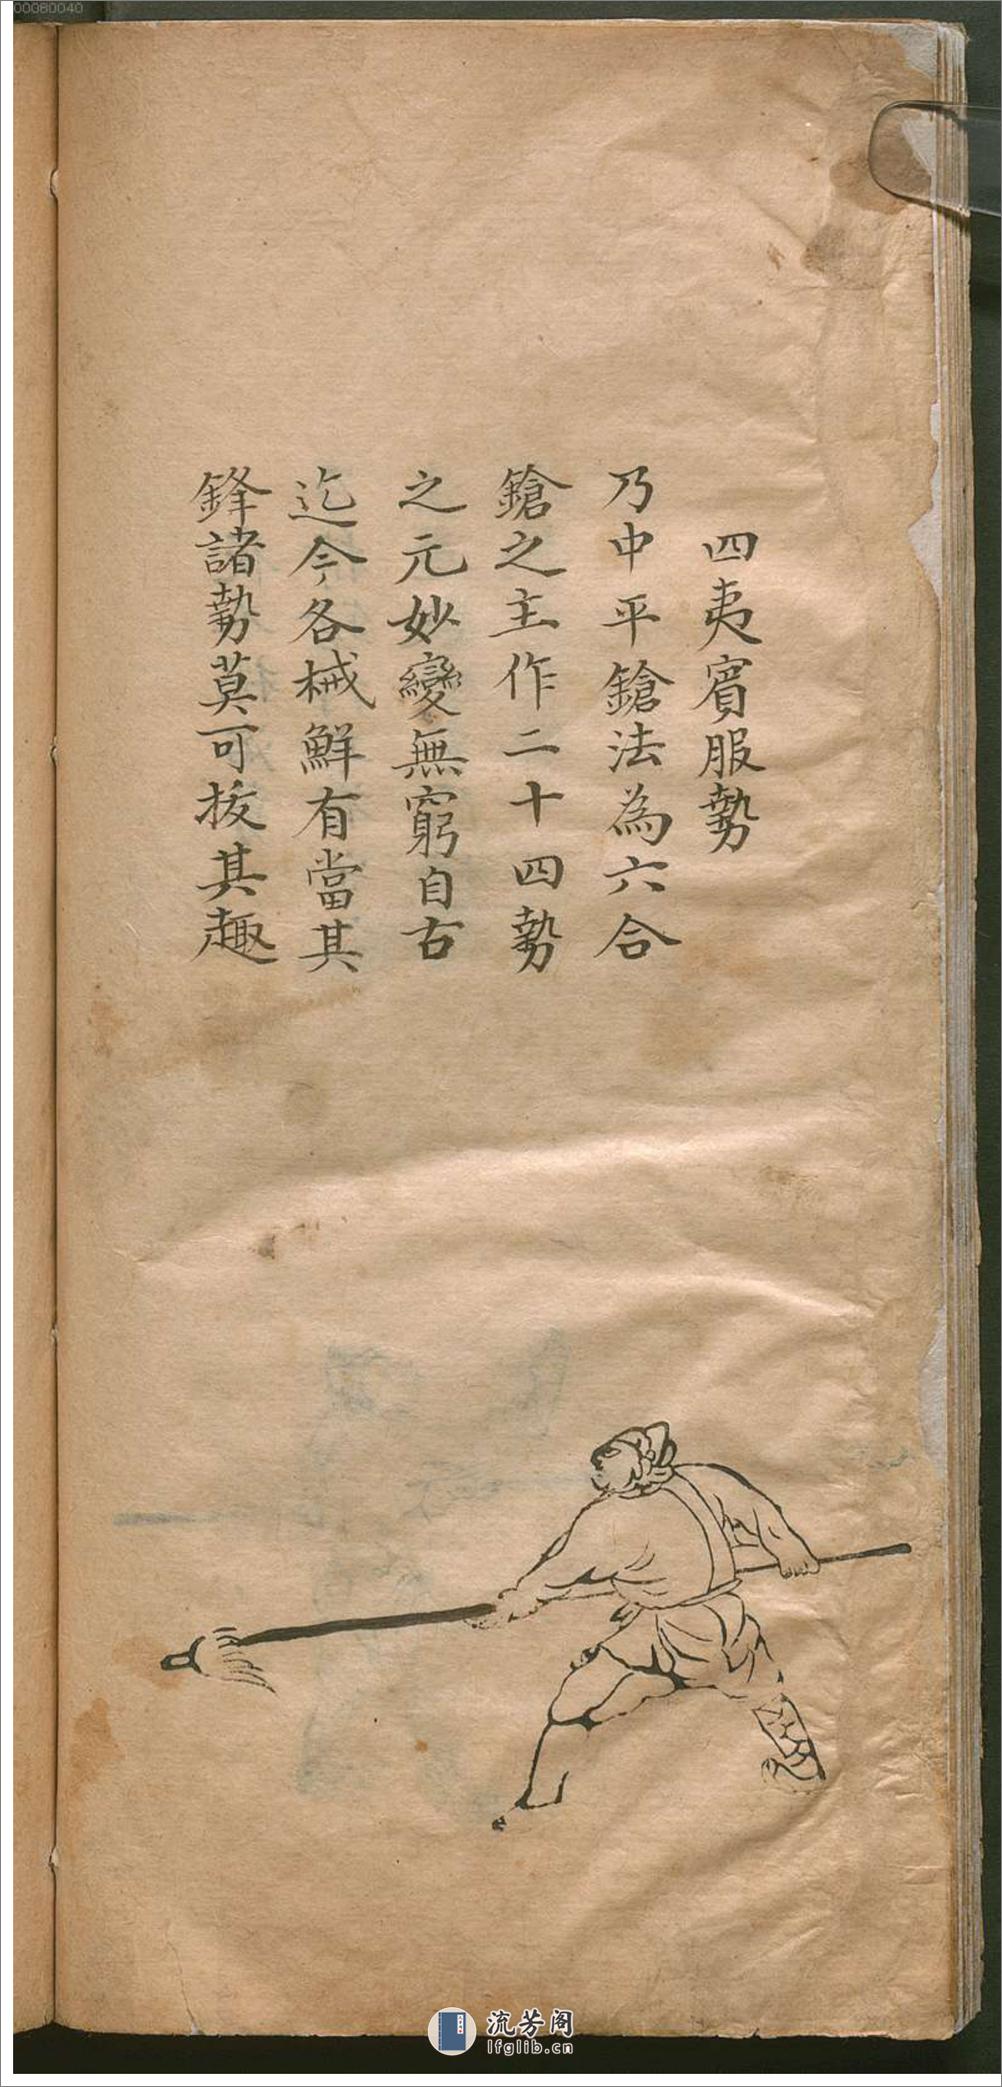 00080040
四夷賓服勢
乃中平鎗法為六合
鎗之主作二十四勢
之元妙變無窮自古
迄今各械鮮有當其
鋒諸勢莫可拔其趣
流芳阁
lfglib.cn